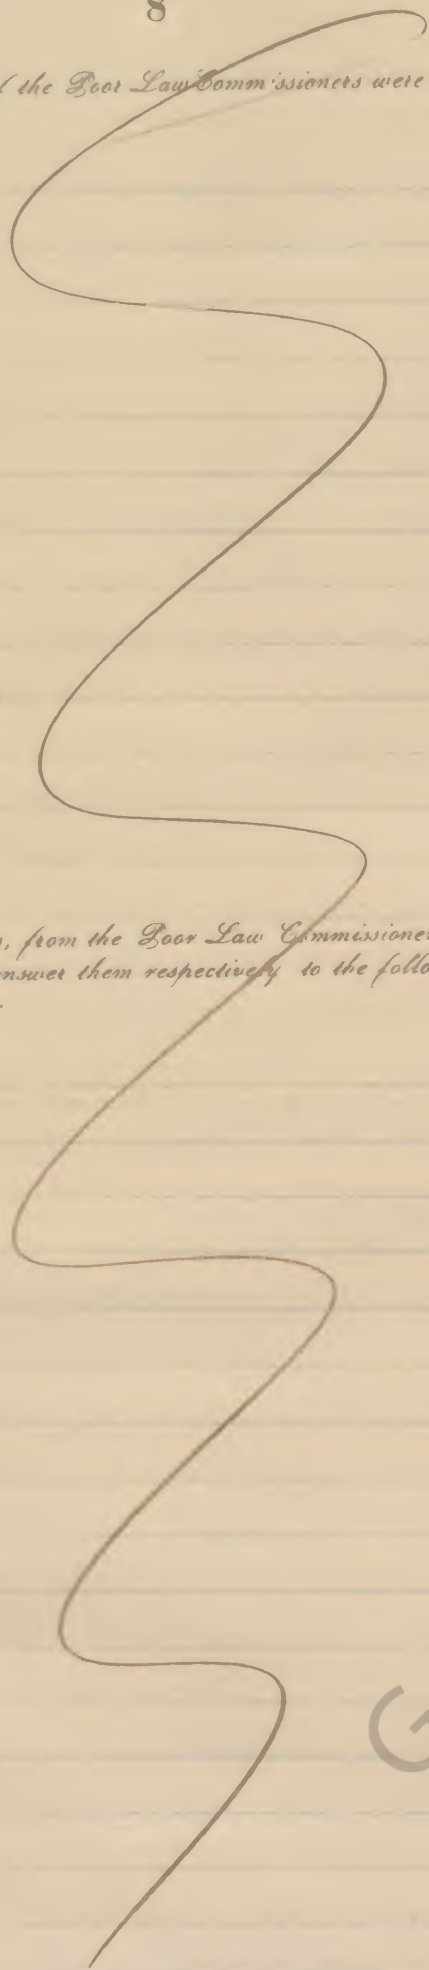 8
the Poor Law Commissioners were
, from the Poor Law Commissioner
nswer them respectively to the follo
G